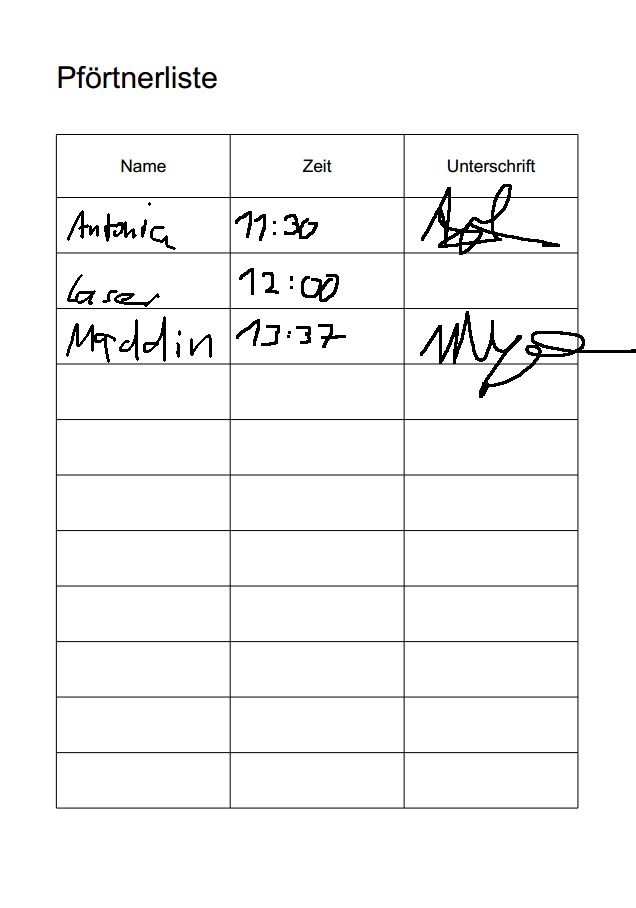 Pförtnerliste
Name Zeit Unterschrift
Antonia 11:30
Laser 12:00
Maddin 13:37